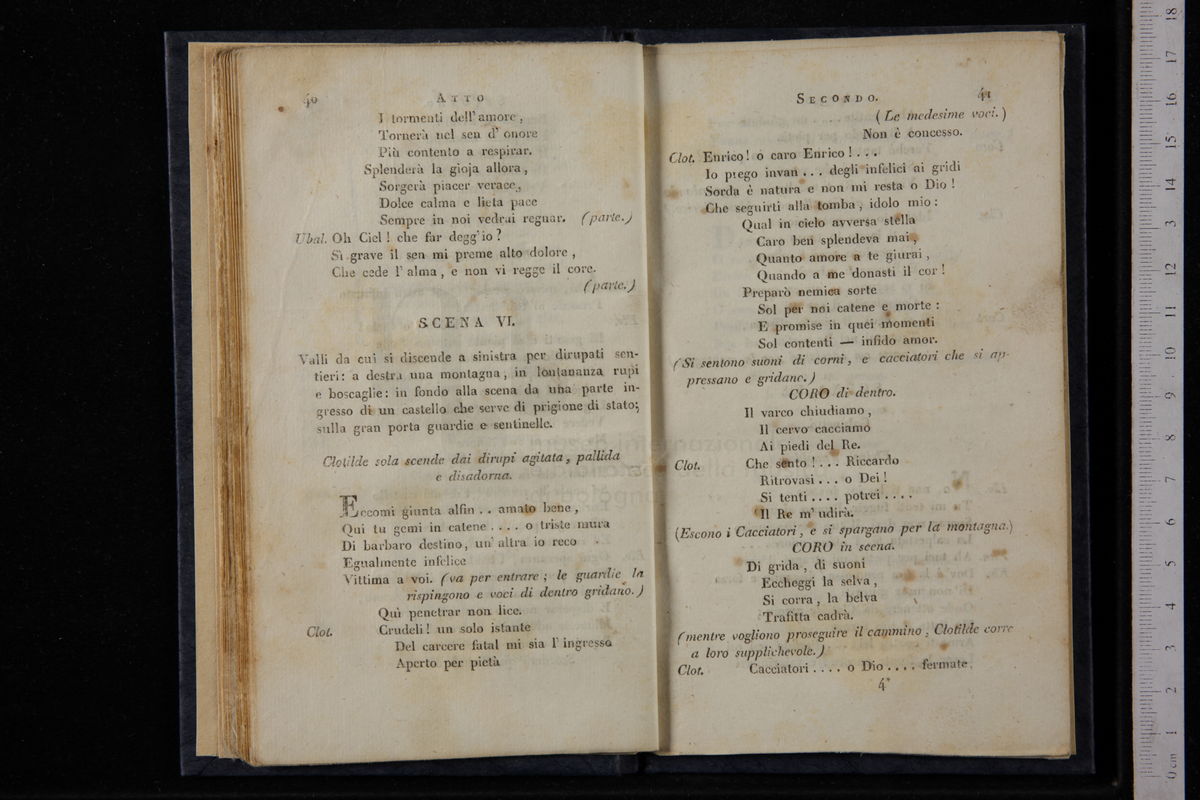 40 ATTO
I tormenti dell' amore,
Tornerà nel sen d' onore
Più contento a respirar.
Splenderà la gioja allora,
Sorgerà piacer verace,
Dolce calma e lieta pace
Sempre in noi vedrai regnar. (parte.)
Ubal. Oh Ciel! che far degg'io?
Sì grave il sen mi preme alto dolore,
Che cede l' alma, e non vi regge il core.
(parte.)
SCENA VI.
Valli da cui si discende a sinistra per dirupati sen-
tieri: a destra una montagna, in lontananza rupi
e boscaglie: in fondo alla scena da una parte in-
gresso di un castello che serve di prigione di stato;
sulla gran porta guardie e sentinelle.
Clotilde sola scende dai dirupi agitata, pallida
e disadorna.
Eccomi giunta alfin . . amato bene,
Qui tu gemi in catene . . . . o triste mura
Di barbaro destino, un' altra io reco
Egualmente infelice
Vittima a voi. (va per entrare; le guardie la
rispingono e voci di dentro gridano.)
Quì penetrar non lice.
Clot. Crudeli! un solo istante
Del carcere fatal mi sia l' ingresso
Aperto per pietà
SECONDO. 41
(Le medesime voci.)
Non è concesso.
Clot. Enrico! o caro Enrico! . . .
Io piego invan . . . degli infelici ai gridi
Sorda è natura e non mi resta o Dio!
Che seguirti alla tomba, idolo mio:
Qual in cielo avversa stella
Caro ben splendeva mai,
Quanto amore a te giurai,
Quando a me donasti il cor!
Preparò nemica sorte
Sol per noi catene e morte:
E promise in quei momenti
Sol contenti — infido amor.
(Si sentono suoni di corni, e cacciatori che si ap-
pressano e gridano.)
CORO di dentro.
Il varco chiudiamo,
Il cervo cacciamo
Ai piedi del Re.
Clot. Che sento! . . . Riccardo
Ritrovasi . . . o Dei!
Si tenti . . . . potrei . . . .
Il Re m' udirà.
(Escono i Cacciatori, e si spargano per la montagna.)
CORO in scena.
Di grida, di suoni
Eccheggi la selva,
Si corra, la belva
Trafitta cadrà.
(mentre vogliono proseguire il cammino, Clotilde corre
a loro supplichevole.)
Clot. Cacciatori . . . . o Dio . . . . fermate.
4*